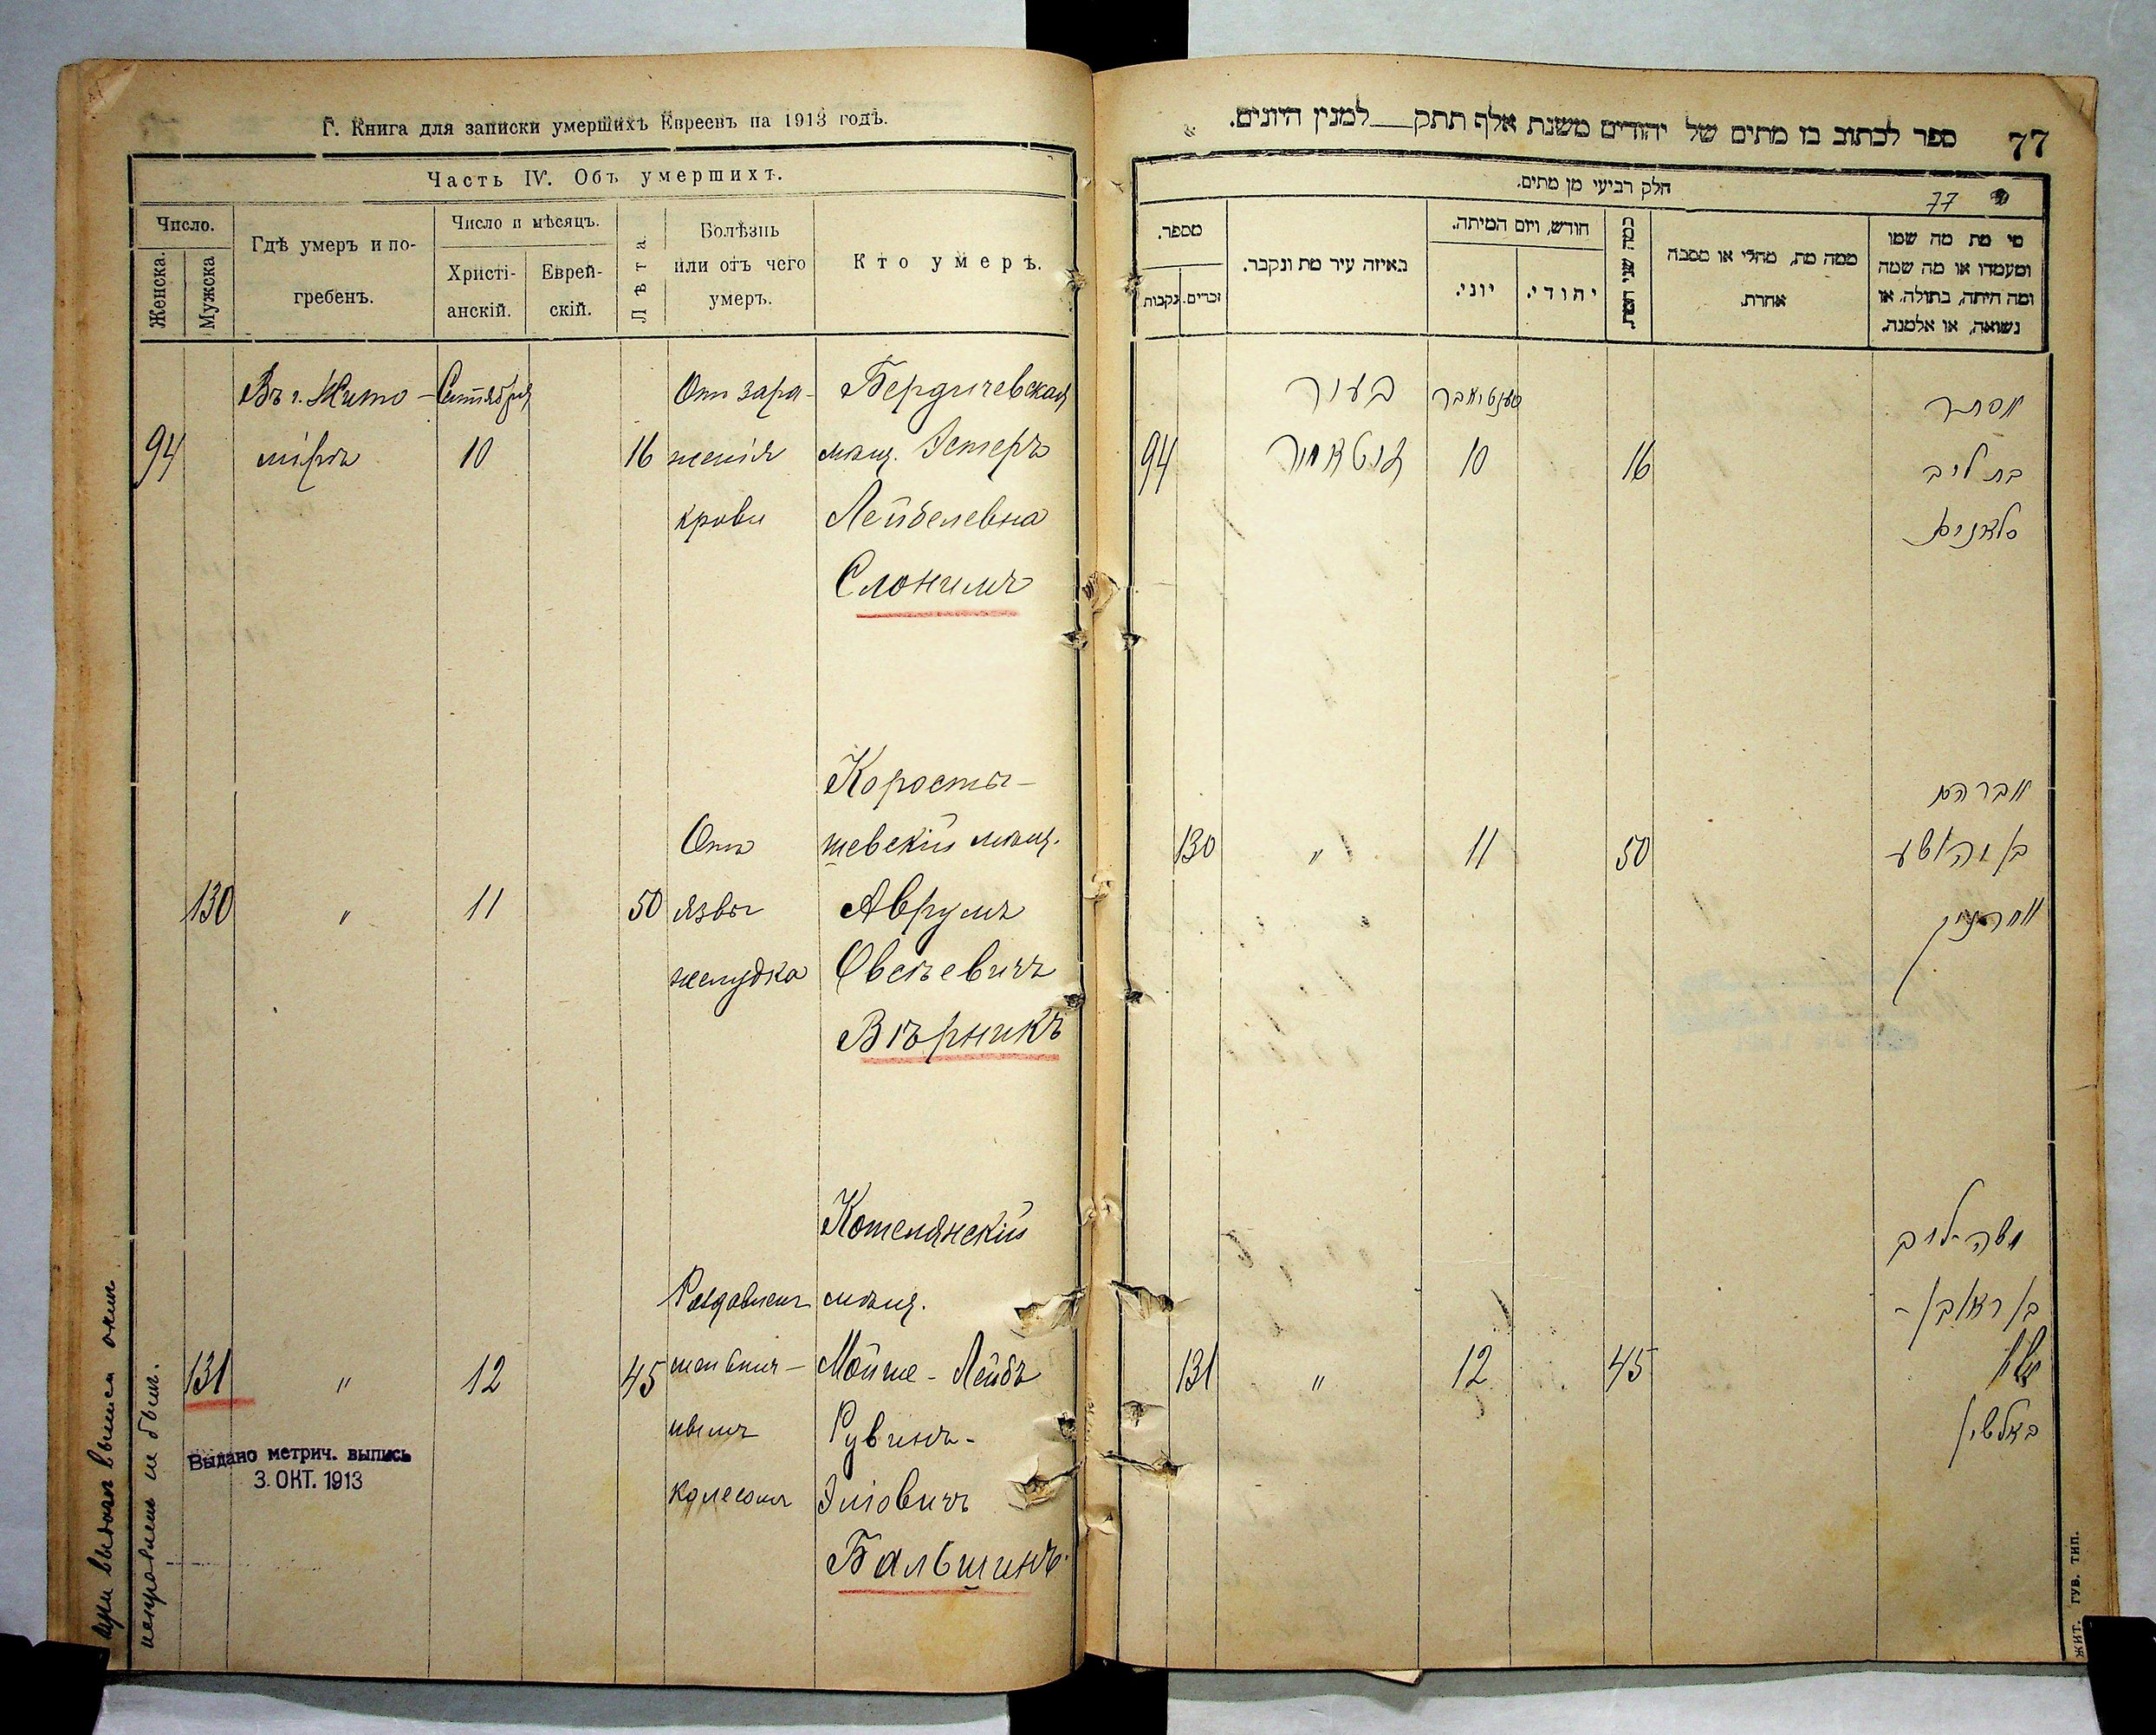 Г. Книга для записки умершихъ Евреевъ на 1913 годъ.
Часть IV. Объ умершихъ.
Число.
Женска.
Мужска
Гдѣ умеръ и по-
гребенъ.
Число и мѣсяцъ.
Христі-
анскій.
Еврей-
скій.
Лѣта.
Болѣзнь
или отъ чего
умеръ.
Кто умеръ.
94
Въ г. Жито-
мірѣ
Сентября
10
16
Отъ зара-
женія
крови
Бердичевская
мѣщ. Эстеръ
Лейбелевна
Слонимъ
130
"
11
50
Отъ
язвы
желудка
Коросты-
шевскій мѣщ.
Аврумъ
Овсѣевичъ
Вѣрникъ
131
"
12
45
Раздавленъ
колесомъ
Котелянскій
мѣщ.
Мойше-Лейбъ
Рувинъ-
Эліовичъ
Бальшинъ.
Выдано метрич. выпись
3. ОКТ. 1913
при выдачѣ выписи
не былъ.
ספר לכתוב בו מתים של יהודים משנת אלף תתק למנין היונים.
77
חלק רביעי מן מתים.
77
מספר.
נקבות
זכרים.
באיזה עיר מת ונקבר.
חודש, ויום המיתה.
יוני.
יהודי.
כמה שני המת.
ממה מת, מחלי או מסבה
אחרת.
מי מת מה שמו
ומעמדו או מה שמה
ומה היתה, בתולה, או
נשואה, או אלמנה.
94
בעיר
זיטאמיר
סענטיאבר
10
16
אסתר
בת ליב
סלאנים
130
"
11
50
אברהם
בן יהושע
131
"
12
45
משה ליב
בן ראובן-
באלשין
ЖИТ. ГУБ. ТИП.